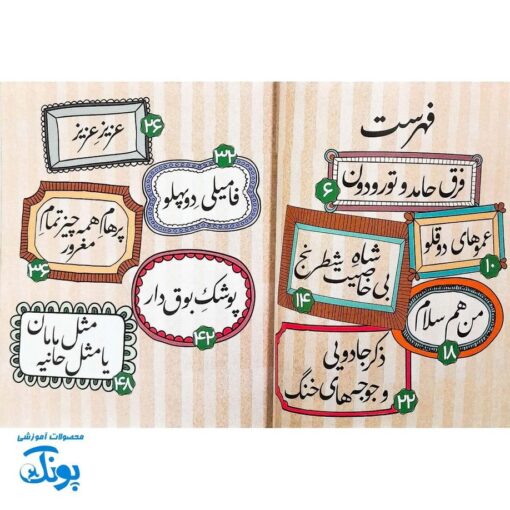 فهرست
فرق حامد و تورودون
۶
عموهای دوقلو
۱۰
شاه
بی‌خاصیت شطرنج
۱۴
من هم سلام
۱۸
ذکر جادویی
و جوجه‌های خنگ
۲۲
عزیزِ عزیز
۲۶
فامیلی دوپهلو
۳۲
پرهامِ همه چیز تمامِ
مغرور
۳۶
پوشک بوق دار
۴۲
مثل مامان
یا مثل حانیه
۴۸
محصولات آموزشی
پونک